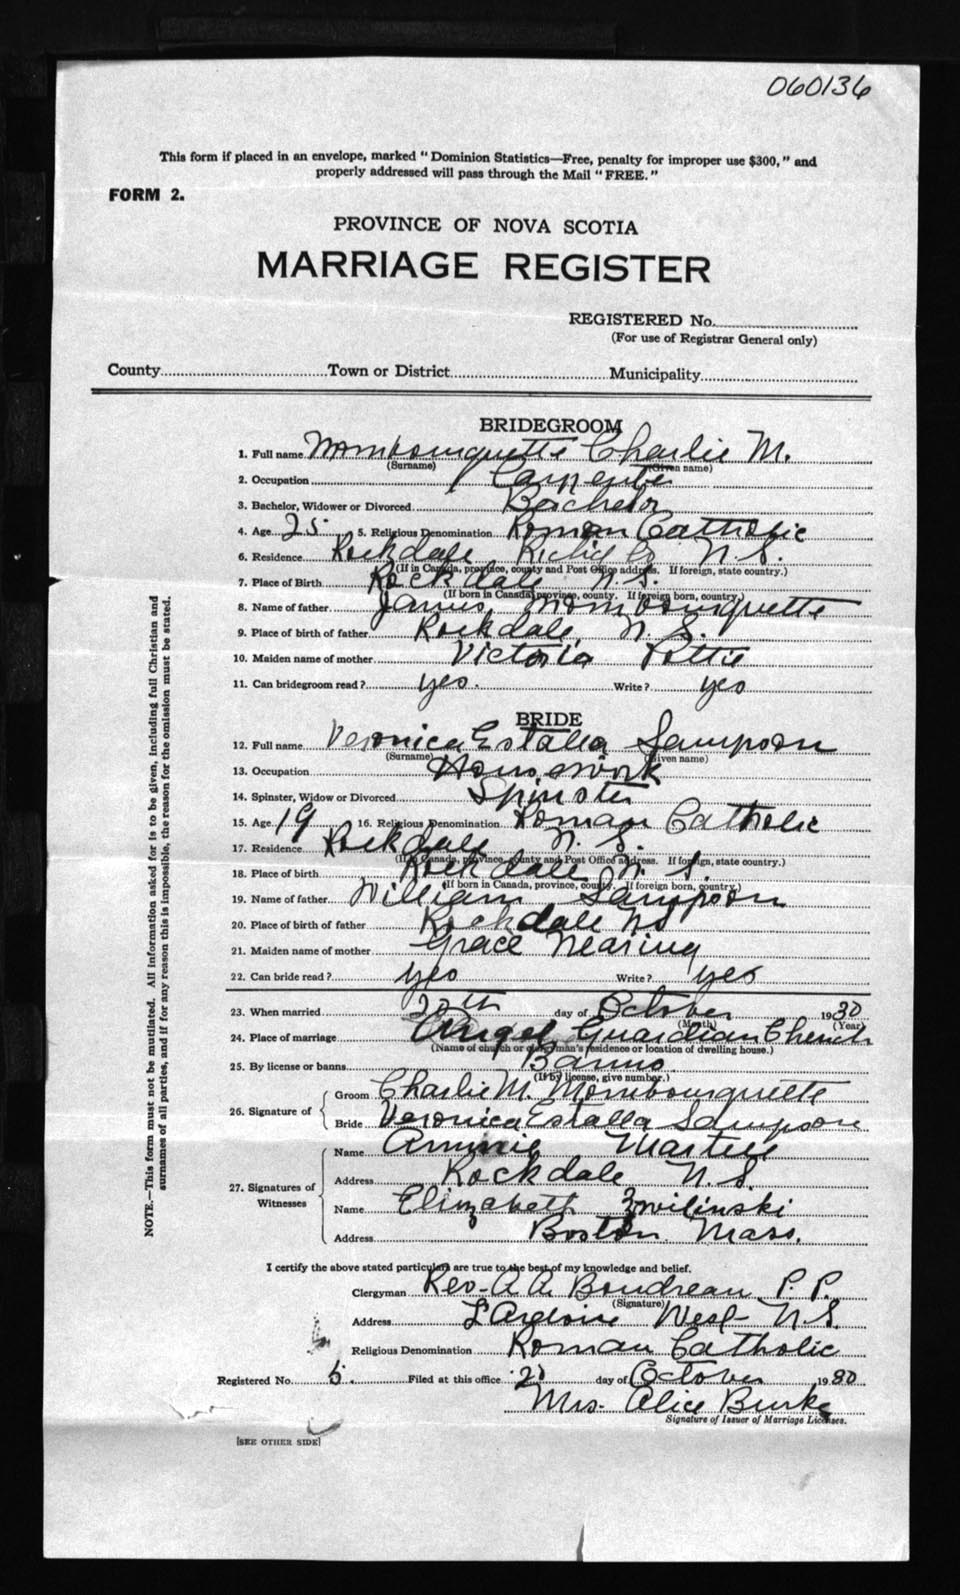 060136
This form if placed in an envelope, marked "Dominion Statistics—Free, penalty for improper use $300," and
properly addressed will pass through the Mail "FREE."
FORM 2.
PROVINCE OF NOVA SCOTIA
MARRIAGE REGISTER
REGISTERED No.
(For use of Registrar General only)
County Town or District Municipality
BRIDEGROOM
1. Full name Mombourquette Charlie M.
(Surname) (Given name)
2. Occupation Carpenter
3. Bachelor, Widower or Divorced Bachelor
4. Age 25 5. Religious Denomination Roman Catholic
6. Residence Rockdale Rich Co N.S.
(If in Canada, province, county and Post Office address. If foreign, state country.)
7. Place of Birth Rockdale N.S.
(If born in Canada, province, county. If foreign born, country.)
8. Name of father James Mombourquette
9. Place of birth of father Rockdale, N.S.
10. Maiden name of mother Victoria Pottie
11. Can bridegroom read? yes. Write? yes
BRIDE
12. Full name Veronica Estalla Sampson
(Surname) (Given name)
13. Occupation Housework
14. Spinster, Widow or Divorced Spinster
15. Age 19 16. Religious Denomination Roman Catholic
17. Residence Rockdale N.S.
(If in Canada, province, county and Post Office address. If foreign, state country.)
18. Place of birth Rockdale N.S.
(If born in Canada, province, county. If foreign born, country.)
19. Name of father William Sampson
20. Place of birth of father Rockdale NS
21. Maiden name of mother Grace Nearing
22. Can bride read? yes Write? yes
23. When married 20th day of October 1930
(Month) (Year)
24. Place of marriage Angel Guardian Church
(Name of church or clergyman's residence or location of dwelling house.)
25. By license or banns Banns
(If by license, give number.)
26. Signature of
Groom Charlie M. Mombourquette
Bride Veronica Estalla Sampson
27. Signatures of Witnesses
Name Annnie Martell
Address Rockdale N.S.
Name Elizabeth Zwilinski
Address Boston Mass.
I certify the above stated particulars are true to the best of my knowledge and belief.
Clergyman Rev. A A Boudreau P.P.
(Signature)
Address L'Ardoise West N.S.
Religious Denomination Roman Catholic
Registered No. 5. Filed at this office 20 day of October 1930
Mrs. Alice Burke
Signature of Issuer of Marriage Licenses.
[SEE OTHER SIDE]
NOTE.—This form must not be mutilated. All information asked for is to be given, including full Christian and
surnames of all parties, and if for any reason this is impossible, the reason for the omission must be stated.